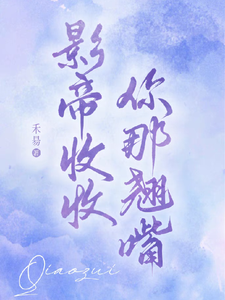 影帝收收
你那翘嘴
禾易 著
Qiaozui